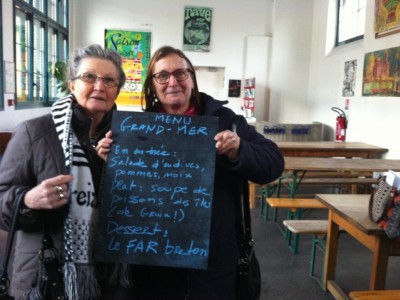 MENU
GRAND-MER
En entrée:
Salade d'endives,
pommes, noix
Plat: soupe de
poissons des îles
(de Groix!)
Dessert:
le FAR breton